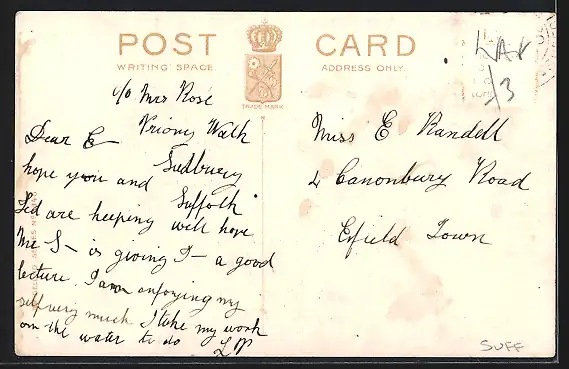 POST CARD
WRITING SPACE. ADDRESS ONLY.
TRADE MARK
c/o Mrs Rose
Priory Walk
Sudbury
Suffolk
Dear E
hope you and
Sid are keeping well hope
Mr S— is giving I— a good
lecture. I am enjoying my
self very much I take my work
on the water to do
Miss E Randell
4 Canonbury Road
Enfield Town
SUFF